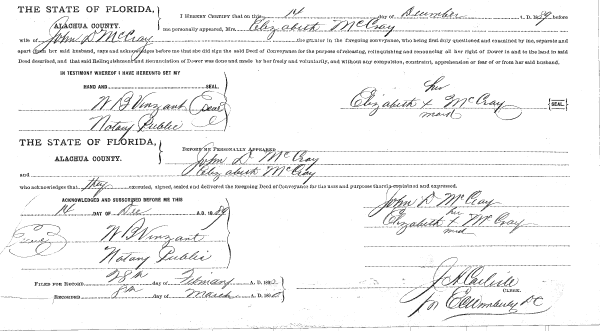 THE STATE OF FLORIDA,
ALACHUA COUNTY.
I HEREBY CERTIFY that on this 14 day of December A. D. 1889 before
me personally appeared, Mrs. Elizabeth McCray
wife of John D McCray the grantor in the foregoing conveyance, who being first duly questioned and examined by me, separate and
apart from her said husband, says and acknowledges before me that she did sign the said Deed of Conveyance for the purpose of releasing, relinquishing and renouncing all her right of Dower in and to the land in said
Deed described, and that said Relinquishment and Renunciation of Dower was done and made by her freely and voluntarily, and without any compulsion, constraint, apprehension or fear of or from her said husband.
IN TESTIMONY WHEREOF I HAVE HEREUNTO SET MY
HAND AND SEAL.
W B Vinzant
Notary Public
her
Elizabeth x McCray SEAL.
mark
THE STATE OF FLORIDA,
ALACHUA COUNTY.
BEFORE ME PERSONALLY APPEARED John D McCray
and Elizabeth McCray
who acknowledges that they executed, signed, sealed and delivered the foregoing Deed of Conveyance for the uses and purposes therein contained and expressed.
ACKNOWLEDGED AND SUBSCRIBED BEFORE ME THIS
14 DAY OF Dec A.D. 1889
W B Vinzant
Notary Public
John D McCray
her
Elizabeth x McCray
mark
FILED FOR RECORD 28th day of February A. D. 189
RECORDED 8th day of March A. D. 189
J A Carlisle
CLERK.
for DC